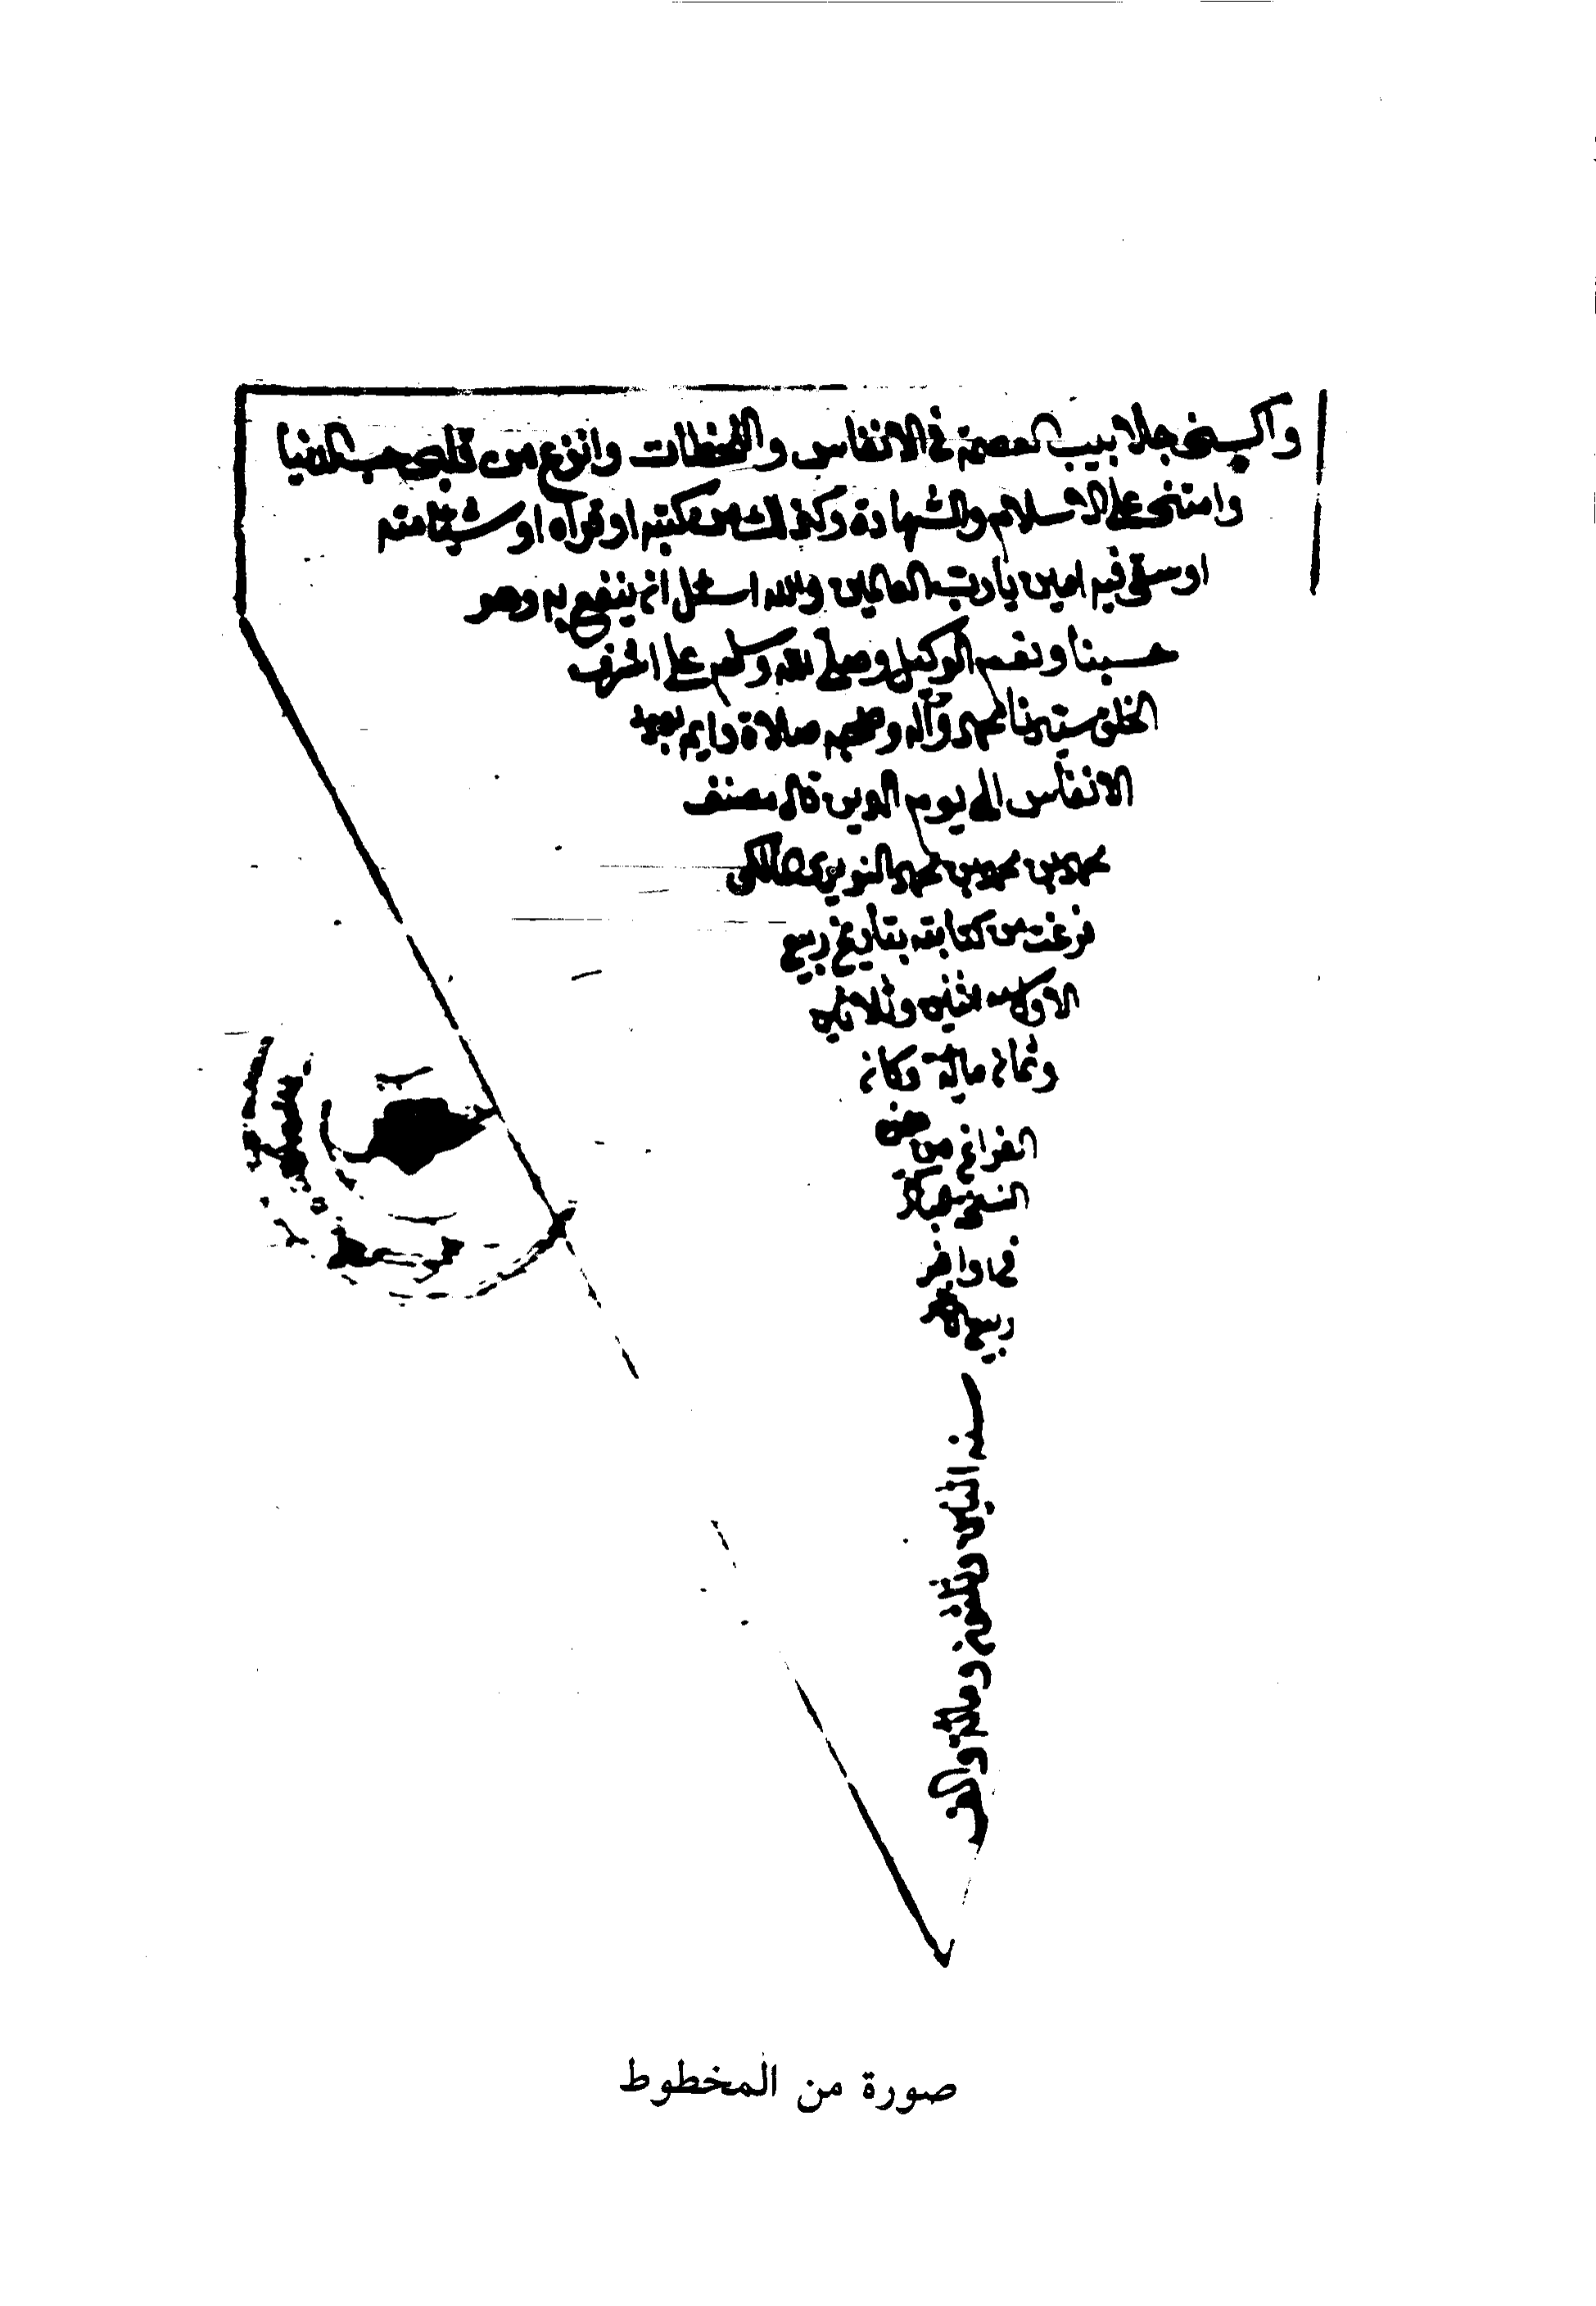 واكسني جلابيب العصمة في الانفاس واللحظات وانزع من قلبي حب الدنيا
وامتني على الاسلام والشهادة وكذلك من كتبه او قرآه او شيئا منه
او سعى فيه امين يا رب العالمين والله اسئل ان ينفع به وهو
حسبنا ونعم الوكيل وصلى الله وسلم على اشرف
الخلق سيدنا محمد وآله وصحبه صلاة دايمه بعدد
الانفاس الى يوم الدين قال مصنفه
محمد بن محمد بن محمد النويري المالكي
فرغت من كتابته بتاريخ ربيع
الاول سنه اثنين وثلاثين
وثمان مائة وكان
الفراغ من هذه
النسخة المباركة
في اواخر
ربيع
سنه اثنين وثلثين ومائة والف
صورة من المخطوط